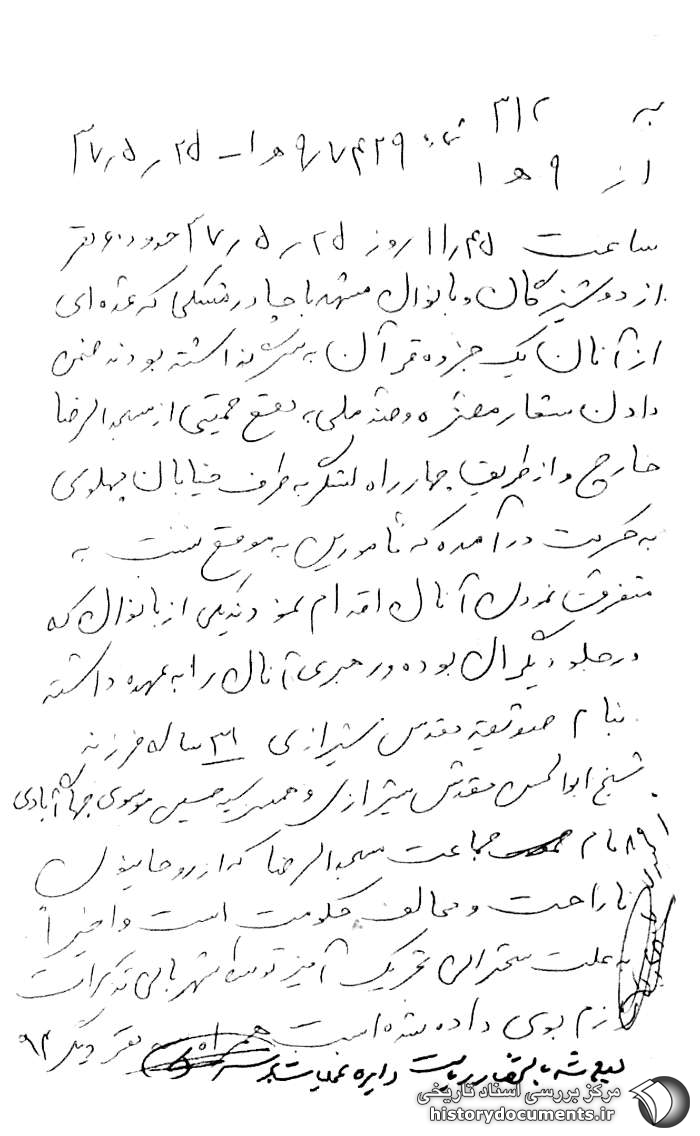 به ۳۱۲
از ۹ ه ۱ شماره ۹/۷۴۲۹ ه ۱ – ۲۵ ر ۵ ر ۳۷
ساعت ۱۱٫۴۵ روز ۲۵ ر ۵ ر ۳۷ حدود ۶۰ نفر
از دوشیزگان و بانوان مشهد با چادر مشکی که عده‌ای
از آنان یک جزوه قرآن به سر گذاشته بودند ضمن
دادن شعار مضره و ضد ملی به نفع خمینی از مسجد الرضا
خارج و از طریق چهارراه لشگر به طرف خیابان پهلوی
به حرکت درآمده که مأمورین به موقع نسبت به
متفرق نمودن آنان اقدام نمودند یکی از بانوان که
در جلو دیگران بوده و رهبری آنان را به عهده داشته
بنام صدیقه مقدس شیرازی ۳۱ ساله فرزند
شیخ ابوالحسن مقدس شیرازی و همسر سید حسین موسوی جهان آبادی
امام جماعت مسجد الرضا که از روحانیون
ناراحت و مخالف حکومت است و اخیراً
به علت سخنرانی تحریک آمیز توسط شهربانی تذکرات
لازم بوی داده شده است همراه نفر دیگر
دایره عملیات
مرکز بررسی اسناد تاریخی
historydocuments.ir